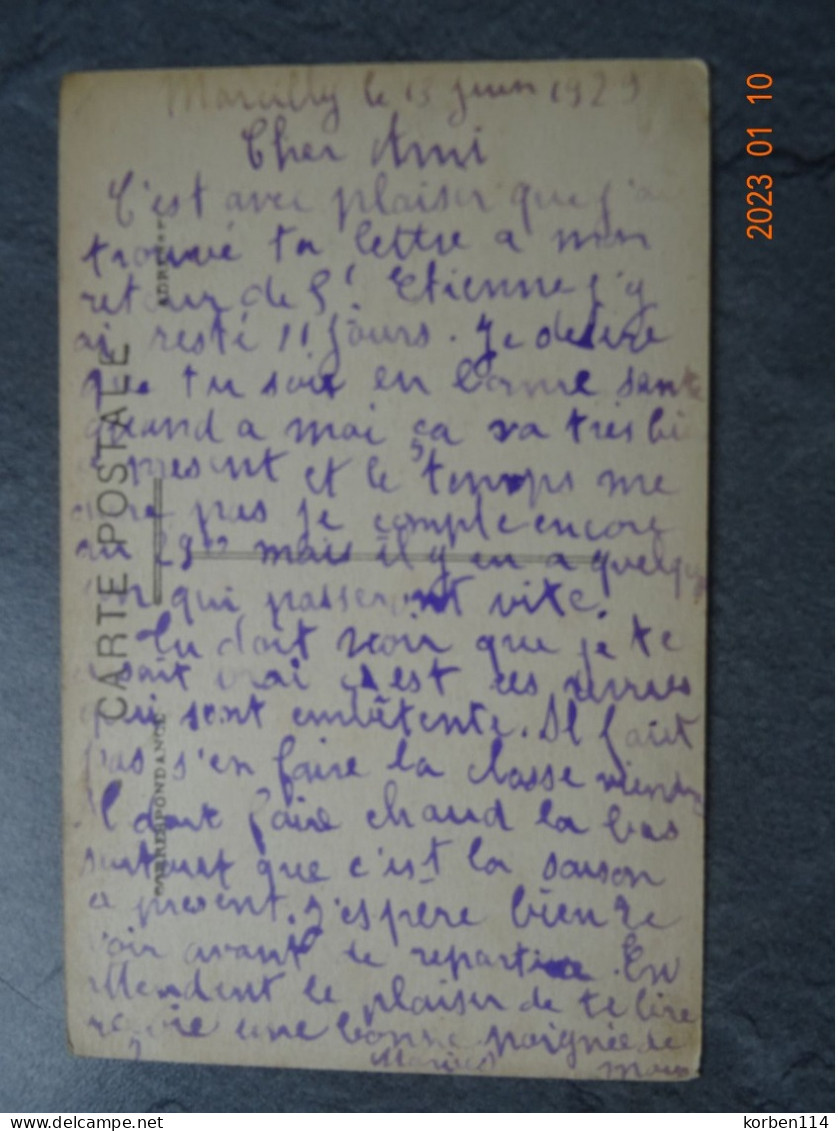 Marcilly le 13 juin 1929
Cher Ami
C'est avec plaisir que j'ai
trouvé ta lettre a mon
retour de St Etienne j'y
ai resté 11 jours. Je desire
que tu soit en bonne sante
quand a moi ça va tres bi
a present et le temps me
dure pas je compte encore
au mais il y en a quelq
qui passeront vite.
Tu doit voir que je te
sait vrai c'est ces
qui sont embêtente. Il faut
pas s'en faire la classe viend
Il doit faire chaud la bas
surtout que c'est la saison
a present. J'espère bien te
voir avant de repartire. En
attendent le plaisir de te lire
reçoie une bonne poignée de
Marius main
CARTE POSTALE
CORRESPONDANCE
ADRESSE
2023 01 10
korben114